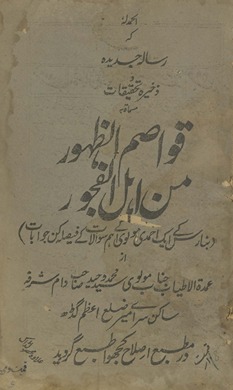 الحمد للہ
کہ
رسالہ جدیدہ
و
ذخیرہ تحقیقات
مسماۃ بہ
قواصم الظہور
من اہل الفجور
(بنارس کے ایک احمدی مولوی کے اہم سوالات کے فیصلہ کن جوابات)
از
عمدۃ الاطیاب جناب مولوی محمد وحید صاحب دام شرفہ
ساکن سرامیر ضلع اعظم گڈھ
در مطبع اصلاح کھجوا طبع گردید